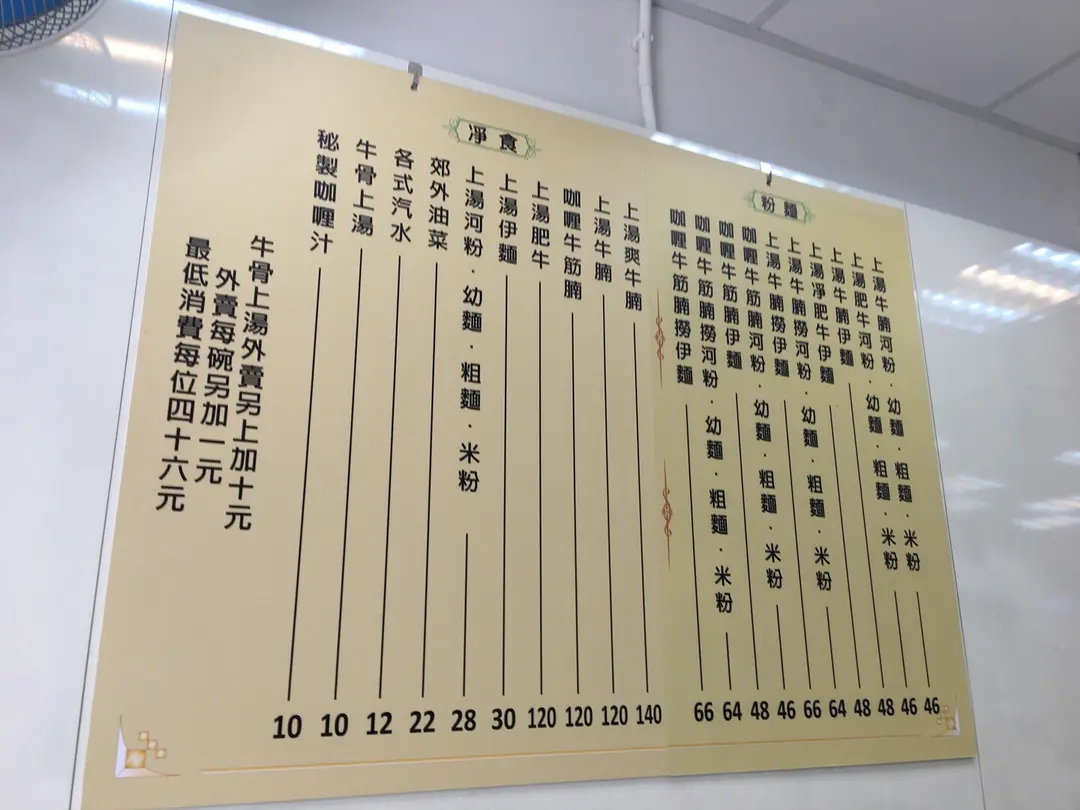 粉麵
上湯牛腩河粉．幼麵．粗麵．米粉 46
上湯肥牛河粉．幼麵．粗麵．米粉 46
上湯牛腩伊麵 48
上湯凈肥牛伊麵 48
上湯牛腩撈河粉．幼麵．粗麵．米粉 64
上湯牛腩撈伊麵 66
咖喱牛筋腩河粉．幼麵．粗麵．米粉 46
咖喱牛筋腩伊麵 48
咖喱牛筋腩撈河粉．幼麵．粗麵．米粉 64
咖喱牛筋腩撈伊麵 66
凈食
上湯爽牛腩 140
上湯牛腩 120
咖喱牛筋腩 120
上湯肥牛 120
上湯伊麵 30
上湯河粉．幼麵．粗麵．米粉 28
郊外油菜 22
各式汽水 12
牛骨上湯 10
秘製咖喱汁 10
牛骨上湯外賣另上加十元
外賣每碗另加一元
最低消費每位四十六元